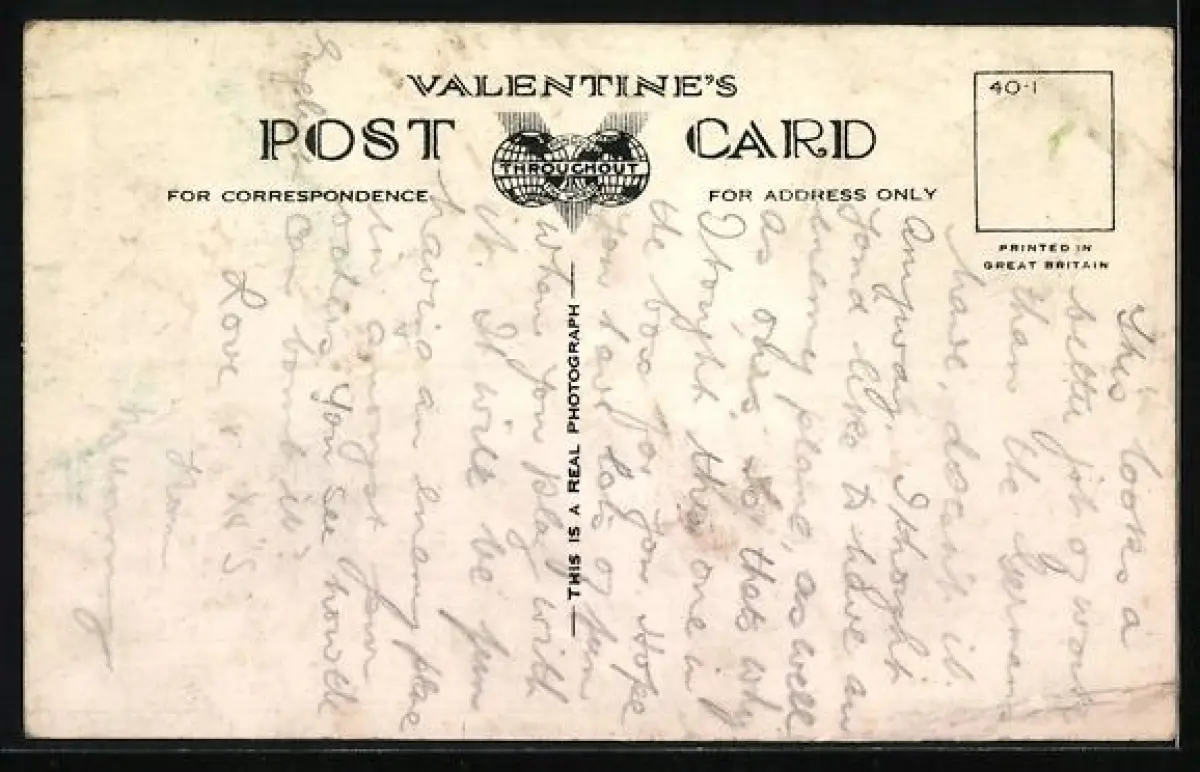 VALENTINE'S
POST CARD
THROUGHOUT
FOR CORRESPONDENCE
FOR ADDRESS ONLY
40-1
PRINTED IN
GREAT BRITAIN
THIS IS A REAL PHOTOGRAPH
This looks a
better job of work
than the Germans
have, doesn't it.
Anyway, I thought
you'd like to have an
enemy plane, as well
as others so thats why
I bought this one in
the box for you. Hope
you have lots of fun
when you play with
it. It will be fun
having an enemy plane
in amongst your
others. You see how
can bomb it?
Love & XX'S
from
Mummy